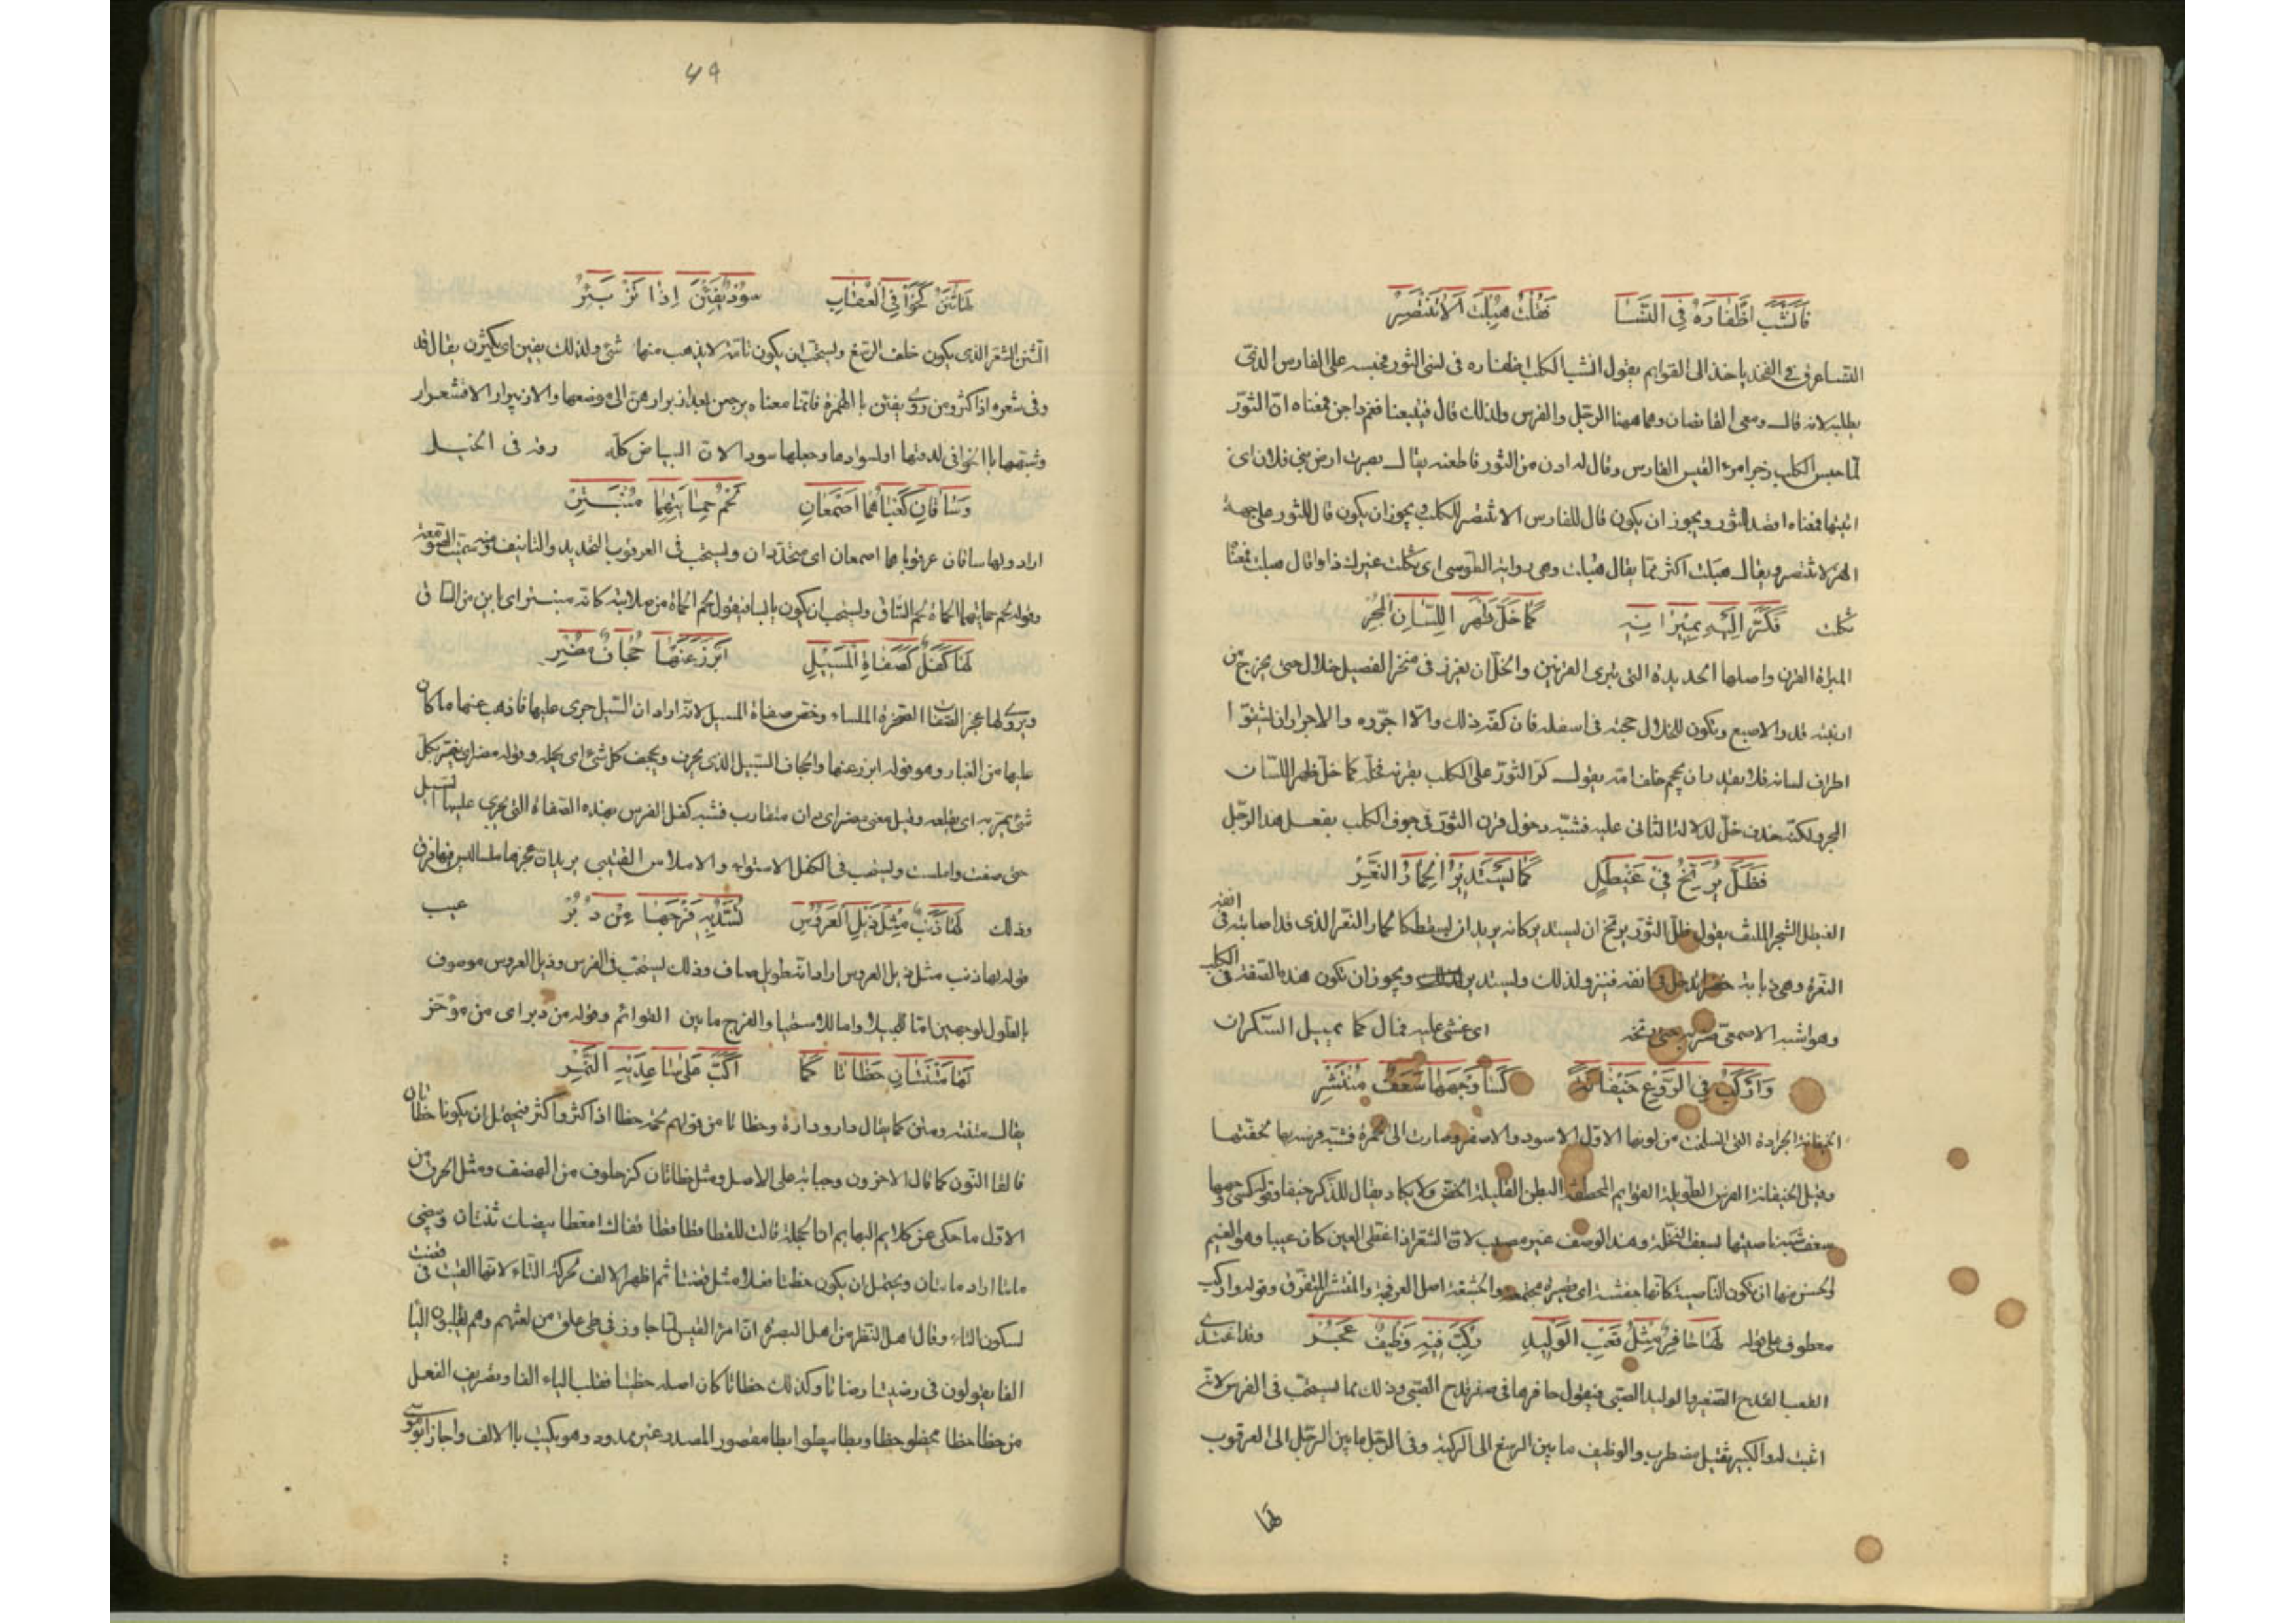 فَأَنْشَبَ اَظْفَارَهُ فِي النَّسَا فَقُلْتُ هُبِلْتَ اَلَا تَنْتَصِرْ
النسا عرق في الفخذ ياخذ الى القوايم يقول انشب الكلب اظفاره في نسى الثور فحبسه على الفارس الذي
يطلبه لانه قال ومعى القانصان وهما ههنا الرجل والفرس ولذلك قال فيتبعنا فغم داجن فمعناه ان الثور
لما حبس الكلب زجر امرء القيس الفارس وقال له ادن من الثور فاطعنه يقال نصرت ارض بني فلان اى
اتيتها فمعناه اقصد الثور ويجوز ان يكون قال للفارس الا تنتصر للكلب ويجوز ان يكون قال للثور على جهة
الهزء لا تنتصر ويقال هبلت اكثر مما يقال هبلت وهى رواية الطوسى اى ثكلت غيرك فاذا قال هبلت فمعنا
ثكلت فَكَرَّ اِلَيْهِ بِمِبْرَاتِهِ كَمَا خَلَّ ظَهْرَ اللِّسَانِ الْمُجِرْ
المبراة القرن واصلها الحديدة التى يبرى القرنين والخلّ ان يغرز فى منخر الفصيل خلال حتى يخرج من
ارنبته قدر الاصبع ويكون للخلال حجنة فى اسفله فان كفه ذلك والا اجروه والاجرار ان يشقوا
اطراف لسانه فلا يقدر ان يجمع خلف امه يقول كرّ الثور على الكلب بقرنه فخله كما خلّ ظهر اللسان
المجر ولكنه حذف خلّ لدلالة الثانى عليه فشبه دخول قرن الثور فى جوف الكلب بفعل هذا الرجل
فَظَلَّ يُرَنِّحُ فِيْ غَيْطَلٍ كَمَا يَسْتَدِيْرُ الْحِمَارُ النَّعِرْ
الغيطل الشجر الملتف يقول ظلّ الثور يرنح ان يستدير كانه يريد ان يسقط كالحمار النعر الذى قد اصابته فى انفه
النعرة وهى ذبابة خضراء تدخل فى انفه فينزو لذلك ويستدير ويجوز ان تكون هذه الصفة فى الكلب
وهو اشبه الاصمعى ضربه حتى رنحه اى غشى عليه فمال كما يميل السكران
وَاَرْكَبُ فِي الرَّوْعِ خَيْفَانَةً كَسَا وَجْهَهَا سَعَفٌ مُنْتَشِرْ
الخيفانة الجرادة التى انسلخت من لونها الاول الاسود والاصفر وصارت الى الحمرة فشبه فرسه بها لخفتها
وقيل الخيفانة الفرس الطويلة القوايم المخطفة البطن القليلة اللحم ولا يكاد يقال للذكر خيفا وقوله كسى وجهها
سعف شبه ناصيتها بسعف النخلة وهذا الوصف غير مصيب لان الشعر اذا غطى العين كان عيبا وهو الغمم
والحسن منها ان تكون الناصية كانها جفنة اى قصيرة مجتمعة والمنتشر المتفرق وقوله واركب
معطوف على قوله لَهَا حَافِرٌ مِثْلُ قَعْبِ الْوَلِيْدِ رُكِّبَ فِيْهِ وَظِيْفٌ عَجُرْ وقد اغتدى
القعب القدح الصغير والوليد الصبى فيقول حافرها فى صغر قدح الصبى وذلك مما يستحب فى الفرس لانه
اثبت له والكبير ثقيل مضطرب والوظيف ما بين الرسغ الى الركبة وفى الرجل ما بين الرجل الى العرقوب
لها
٤٩
لَهَا ثُنَنٌ كَخَوَافِي الْعُقَابِ سُوْدٌ يَفِيْنَ اِذَا تَزْبَئِرْ
الثنن الشعر الذى يكون خلف الرسغ ويستحب ان يكون تامة لا يذهب منها شئ ولذلك يفين اى يكثرن يقال قد
وفى شعره اذا كثر ومن روى يفئن بالهمزة فانما معناه يرجعن بعد ازبرارهن الى موضعها والازبيرار الاقشعرار
وشبهها بالخوافى لدقتها او لسوادها وجعلها سودا لان البياض كله رقة فى الخيل
وَسَاقَانِ كَعْبَاهُمَا اَصْمَعَانِ لَحْمُ حَمَاتَيْهِمَا مُنْبَتِرْ
اراد ولها ساقان عرقوباهما اصمعان اى محددان ويستحب فى العرقوب التحديد والتانيف ومنه سميت الصومعة
وقوله لحم حماتيهما الحماة لحم الساق ويستحب ان يكون يابسا فيقول لحم الحماة من صلابته كانه منبتر اى باين من الساق
لَهَا كَفَلٌ كَصَفَاةِ الْمَسِيْلِ اَبْرَزَ عَنْهَا جُحَافٌ مُضِرْ
ويروى لها عجز الصفاة الصخرة الملساء وخص صفاة المسيل لانه اراد ان السيل جرى عليها فاذهب عنها ما كان
عليها من الغبار وهو قوله ابرز عنها والجحاف السيل الذى يجرف ويجحف كل شئ اى يحمله وقوله مضر اى يضر بكل
شئ يمر به اى يقلعه وقيل معنى مضر اى دان متقارب فشبه كفل الفرس بهذه الصفاة التى يجرى عليها السيل
حتى صفت واملست ويستحب فى الكفل الاستواء والاملاس القتيبى يريد ان عجزها ملسا ليس فيها فرق
وذلك عيب لَهَا ذَنَبٌ مِثْلُ ذَيْلِ الْعَرُوْسِ تَسُدُّ بِهِ فَرْجَهَا مِنْ دُبُرْ
قوله لها ذنب مثل ذيل العروس اراد انه طويل صاف وذلك يستحب فى الفرس وذيل العروس موصوف
بالطول لوجهين اما للخيلاء واما للاستحيا والفرج ما بين القوائم وقوله من دبر اى من مؤخر
لَهَا مَتْنَتَانِ خَظَاتَا كَمَا اَكَبَّ عَلَى سَاعِدَيْهِ النَّمِرْ
يقال متنة ومتن كما يقال دار ودارة وخظاتا من قولهم لحمه خظا اذا كثر واكثر فيحتمل ان يكونا خظاتان
فالقا النون كما قال الاخر وحباته على الاصل ومثل خظاتان كزحلوف من الهضف ومثل الحرف من
الاول ما حكى عن كلام البهايم ان الحجلة قالت للقطا قطا قطا فقال امعطا بيضك ثنتان وبيضى
ماتا اراد ماتان ويحتمل ان يكون خظتا فعلا مثل قضتا ثم اظهر الالف لحركة التاء لانها القيت فى قضت
لسكون التاء وقال اهل النظر من اهل البصرة ان امرء القيس لما جاور فى طى علق من لغتهم وهم يقلبون اليا
الفا يقولون فى رضيتا رضاتا وكذلك خظاتا كان اصله خظيتا فقلب الياء الفا وتصريف الفعل
من خظا خظا يخظو خظا وبظا يبظو ا بظا مقصور المصدر غير ممدود وهو يكتب بالالف واجاز ابو موسى